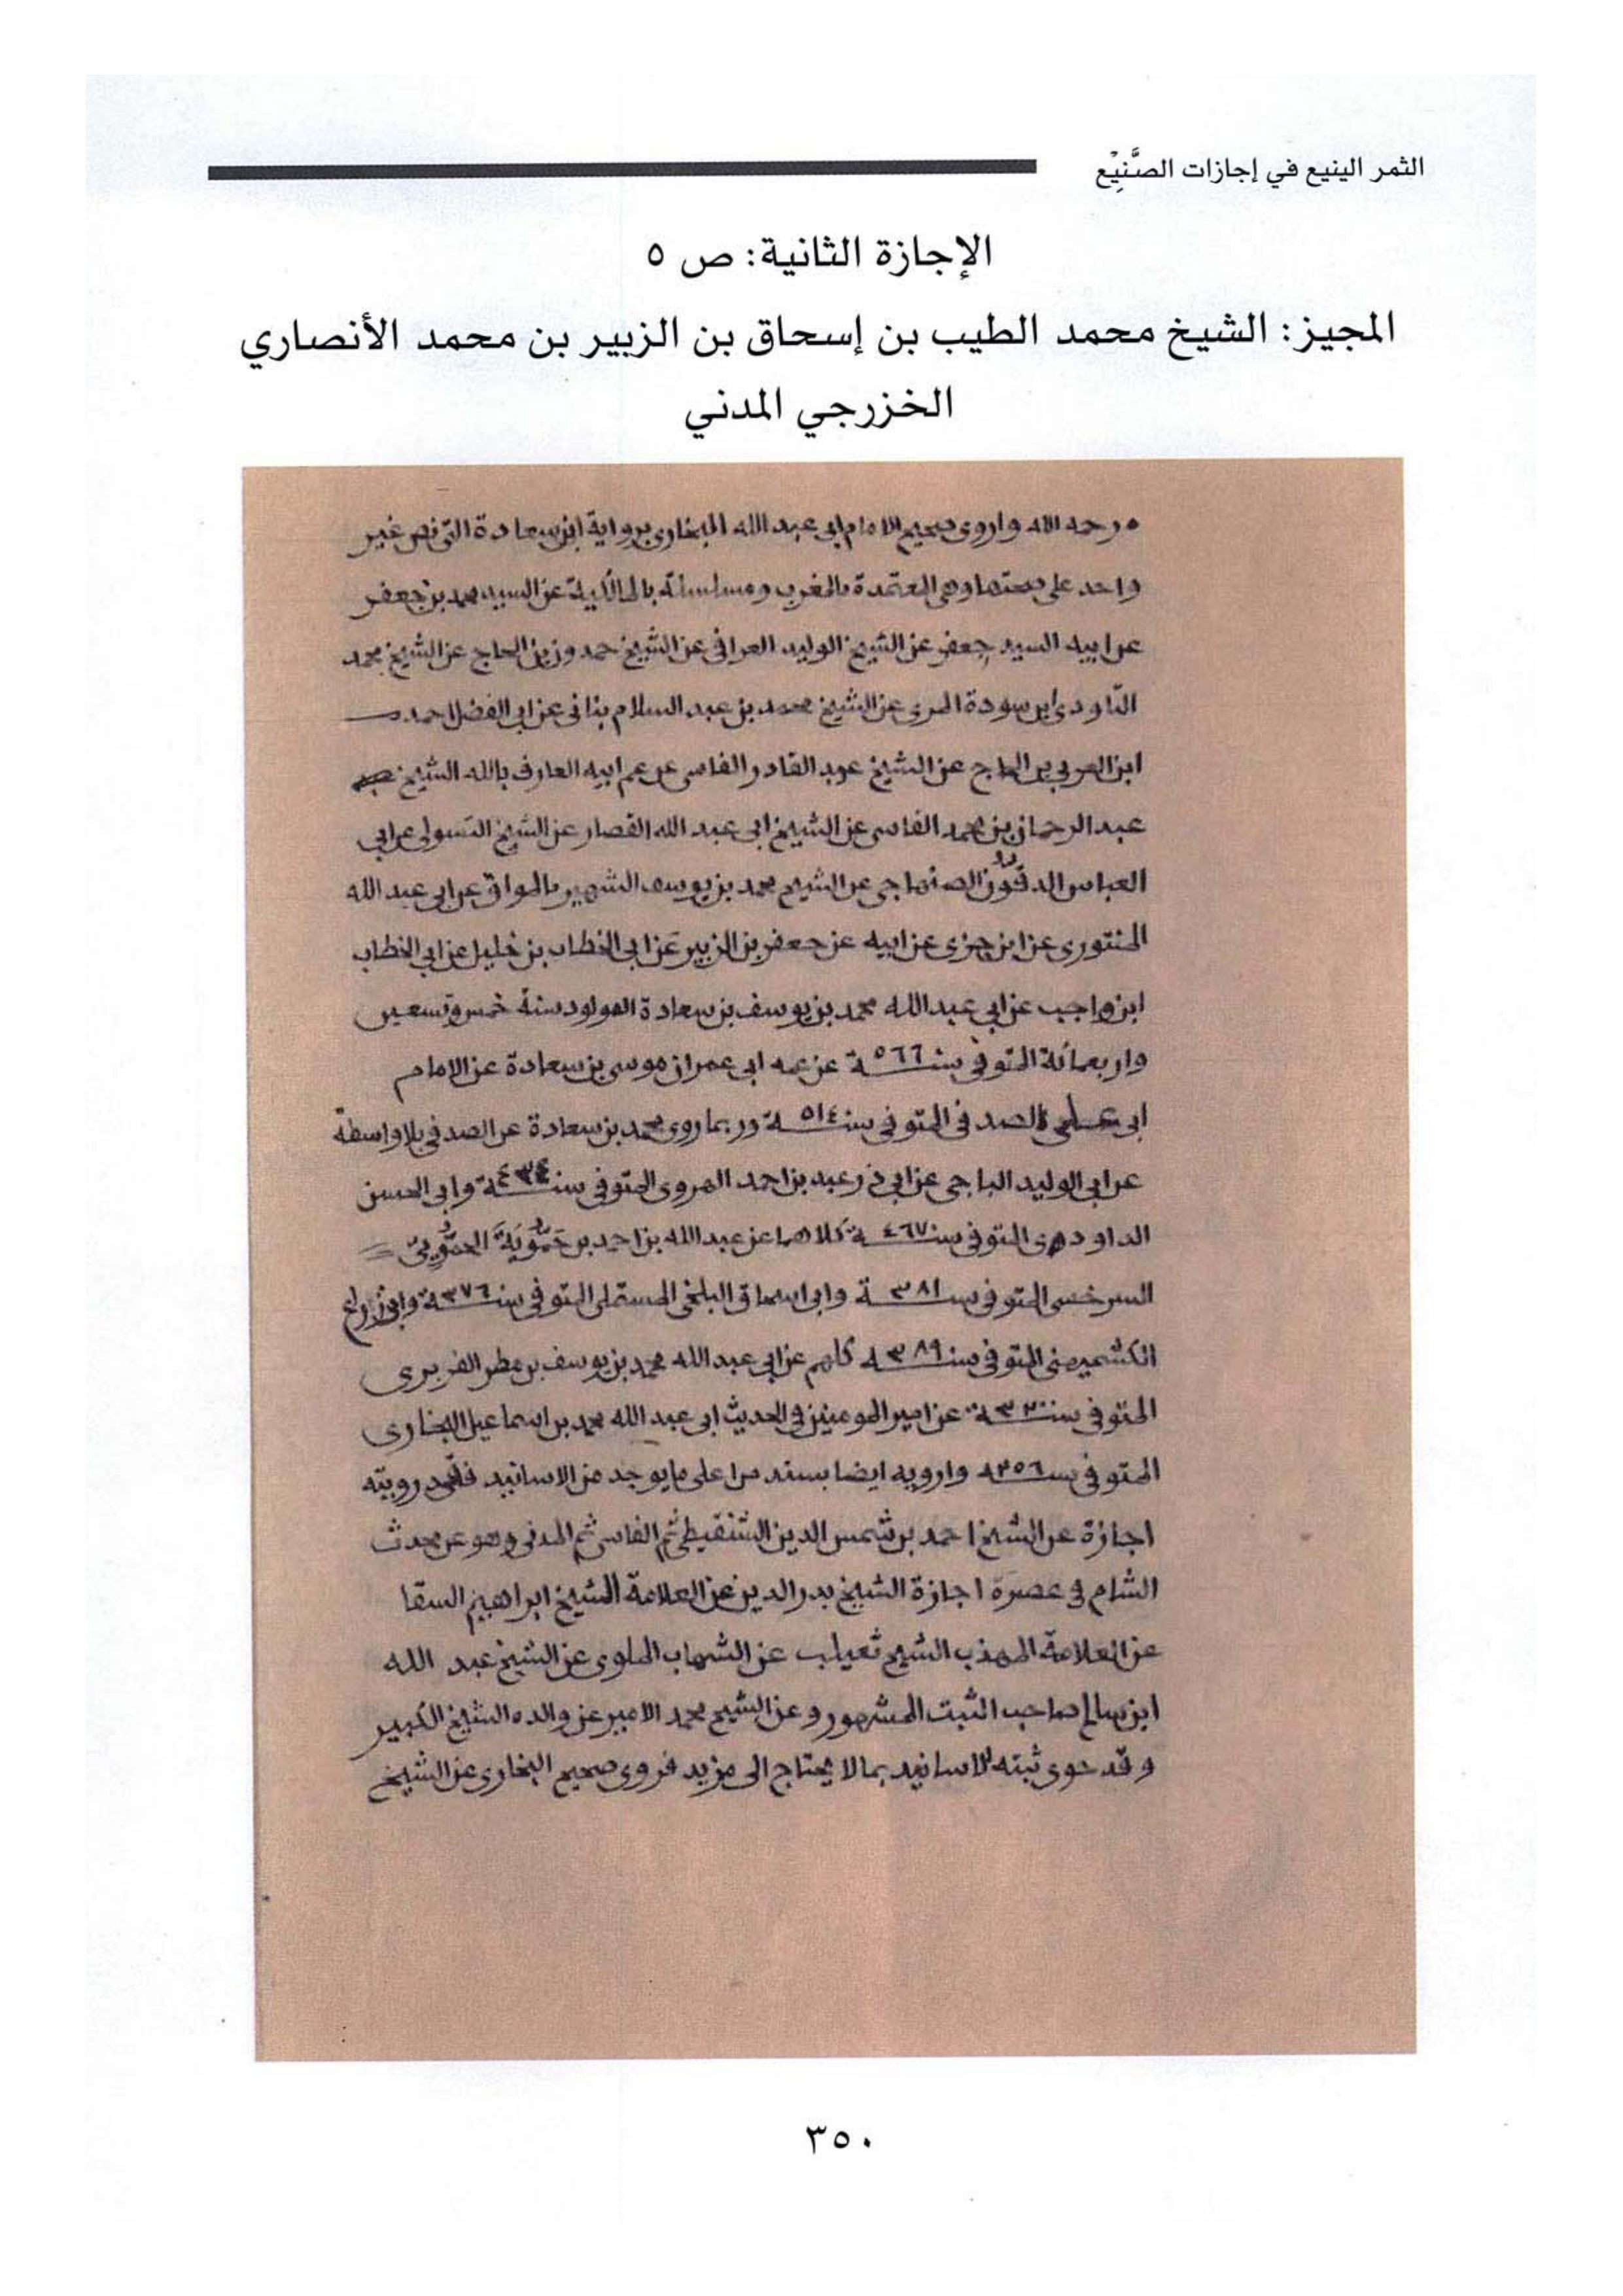 الثمر الينيع في إجازات الصَّنِيْع
الإجازة الثانية: ص ٥
المجيز: الشيخ محمد الطيب بن إسحاق بن الزبير بن محمد الأنصاري
الخزرجي المدني
رحمه الله واروى صحيح الامام ابي عبد الله البخاري برواية ابن سعادة التي نص غير
واحد على صحتها وهي المعتمدة بالمغرب ومسلسلة بالمالكية عن السيد محمد بن جعفر
عن ابيه السيد جعفر عن الشيخ الوليد العراقي عن الشيخ حمدون بن الحاج عن الشيخ محمد
التاودي ابن سودة المري عن الشيخ محمد بن عبد السلام بناني عن ابي الفضل احمد
ابن العربي بن الحاج عن الشيخ عبد القادر الفاسي عن عم ابيه العارف بالله الشيخ
عبد الرحمان بن محمد الفاسي عن الشيخ ابي عبد الله القصار عن الشيخ التسولي عن ابي
العباس الدقون الصنهاجي عن الشيخ محمد بن يوسف الشهير بالمواق عن ابي عبد الله
المنتوري عن ابن جزي عن ابيه عن جعفر بن الزبير عن ابي الخطاب بن خليل عن ابي الخطاب
ابن واجب عن ابي عبد الله محمد بن يوسف بن سعادة المولود سنة خمس وتسعين
واربعمائة المتوفى سنة ٥٦٦ عن عمه ابي عمران موسى بن سعادة عن الامام
ابي علي الصدفي المتوفى سنة ٥١٤ وربما روى محمد بن سعادة عن الصدفي بلا واسطة
عن ابي الوليد الباجي عن ابي ذر عبد بن احمد الهروي المتوفى سنة ٤٣٤ وابي الحسن
الداودي المتوفى سنة ٤٦٧ كلاهما عن عبد الله بن احمد بن حَمُّوية الحَمُّويي
السرخسي المتوفى سنة ٣٨١ وابي اسحاق البلخي المستملي المتوفى سنة ٣٧٦
الكشميهني المتوفى سنة ٣٨٩ كلهم عن ابي عبد الله محمد بن يوسف بن مطر الفربري
المتوفى سنة ٣٢٠ عن امير المومنين في الحديث ابي عبد الله محمد بن اسماعيل البخاري
المتوفى سنة ٢٥٦ وارويه ايضا بسند من اعلى ما يوجد من الاسانيد فلقد رويته
اجازة عن الشيخ احمد بن شمس الدين الشنقيطي ثم الفاسي ثم المدني وهو عن محدث
الشام في عصره اجازة الشيخ بدر الدين عن العلامة الشيخ ابراهيم السقا
عن العلامة المهذب الشيخ ثعيلب عن الشهاب الملوي عن الشيخ عبد الله
ابن سالم صاحب الثبت المشهور وعن الشيخ محمد الامير عن والده الشيخ الكبير
وقد حوى ثبته الاسانيد بما لا يحتاج الى مزيد فروى صحيح البخاري عن الشيخ
٣٥٠